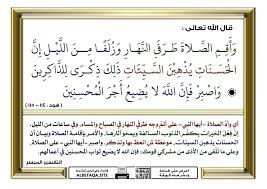 قال الله تعالى :
وَأَقِمِ الصَّلَاةَ طَرَفَيِ النَّهَارِ وَزُلَفًا مِنَ اللَّيْلِ إِنَّ
الْحَسَنَاتِ يُذْهِبْنَ السَّيِّئَاتِ ذَلِكَ ذِكْرَى لِلذَّاكِرِينَ
وَاصْبِرْ فَإِنَّ اللَّهَ لَا يُضِيعُ أَجْرَ الْمُحْسِنِينَ
(هود: ١١٤ - ١١٥)
أي وأدِّ الصلاة -أيها النبي- على أتم وجه طرفي النهار في الصباح والمساء، وفي ساعات من الليل.
إنَّ فعل الخيرات يكفِّر الذنوب السالفة ويمحو آثارها، والأمر بإقامة الصلاة وبيان أن
الحسنات يذهبن السيئات، موعظة لمن اتعظ بها وتذكر. واصبر -أيها النبي- على الصلاة،
وعلى ما تلقى من الأذى من مشركي قومك؛ فإن الله لا يضيع ثواب المحسنين في أعمالهم.
التفسير الميسر
ALBETAQA.SITE